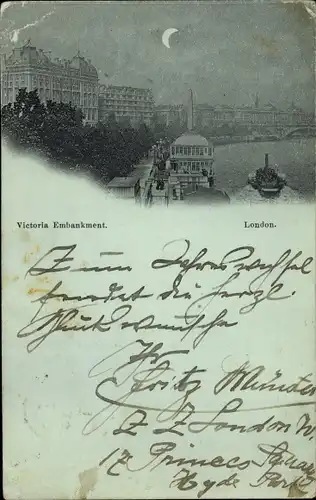 Victoria Embankment. London.
Zum Jahreswechsel
sendet die herzl.
Glückwünsche
Ihr
Fritz Münster
z Z London W.
17 Princes Square
Hyde Park